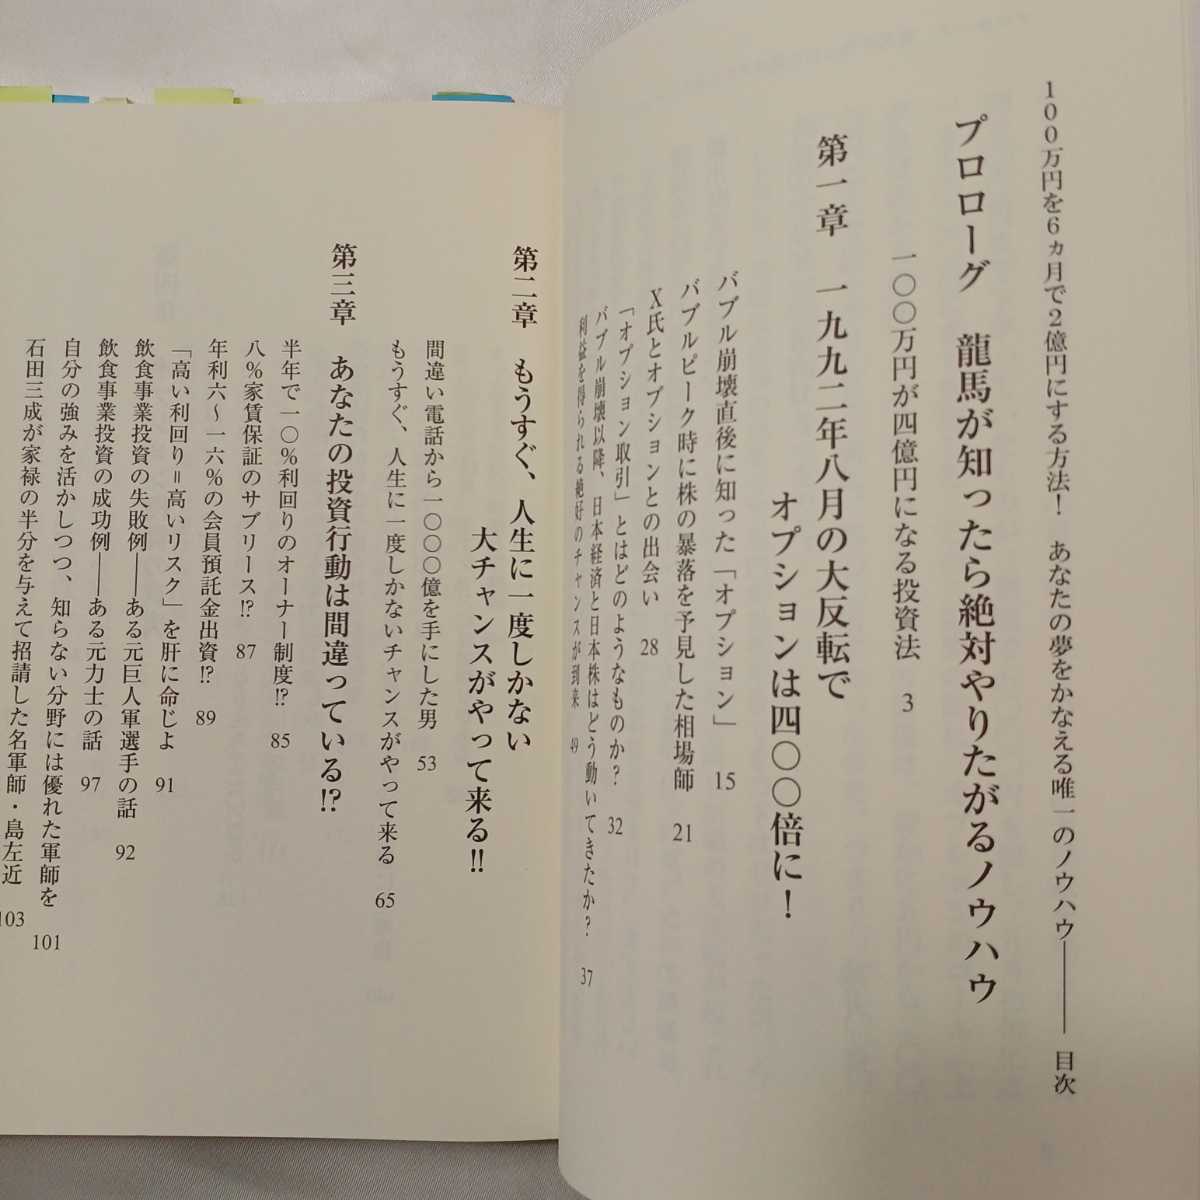 100万円を6ヵ月で2億円にする方法！ あなたの夢をかなえる唯一のノウハウ―――― 目次
プロローグ 龍馬が知ったら絶対やりたがるノウハウ
一〇〇万円が四億円になる投資法 3
第一章 一九九二年八月の大反転で
オプションは四〇〇倍に！
バブル崩壊直後に知った「オプション」 15
バブルピーク時に株の暴落を予見した相場師 21
X氏とオプションとの出会い 28
「オプション取引」とはどのようなものか？ 32
バブル崩壊以降、日本経済と日本株はどう動いてきたか？ 37
利益を得られる絶好のチャンスが到来 49
第二章 もうすぐ、人生に一度しかない
大チャンスがやって来る!!
間違い電話から一〇〇〇億を手にした男 53
もうすぐ、人生に一度しかないチャンスがやって来る 65
第三章 あなたの投資行動は間違っている!?
半年で一〇％利回りのオーナー制度!? 85
八％家賃保証のサブリース!? 87
年利六〜一六％の会員預託金出資!? 89
「高い利回り＝高いリスク」を肝に命じよ 91
飲食事業投資の失敗例――ある元巨人軍選手の話 92
飲食事業投資の成功例――ある元力士の話 97
自分の強みを活かしつつ、知らない分野には優れた軍師を 101
石田三成が家禄の半分を与えて招請した名軍師・島左近 103